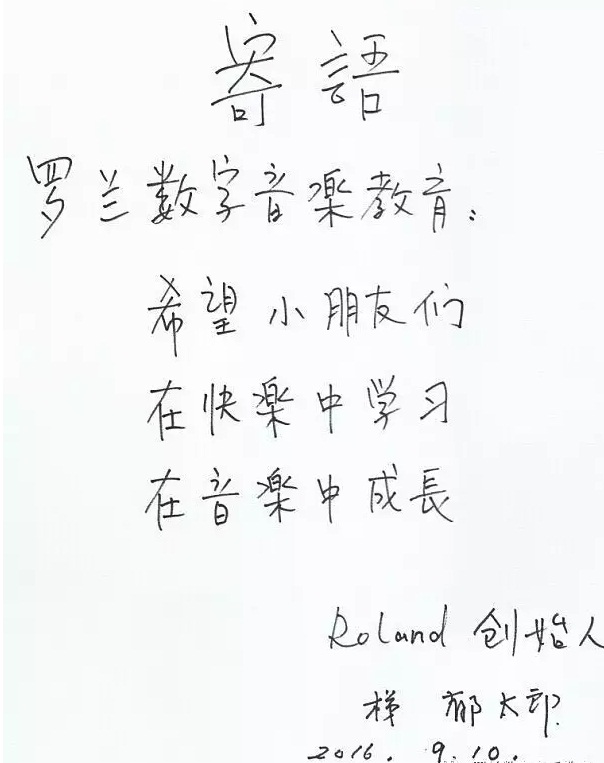 寄語
罗兰数字音楽教育：
希望小朋友们
在快楽中学习
在音楽中成長
Roland 创始人
梯 郁太郎
2016. 9. 10.